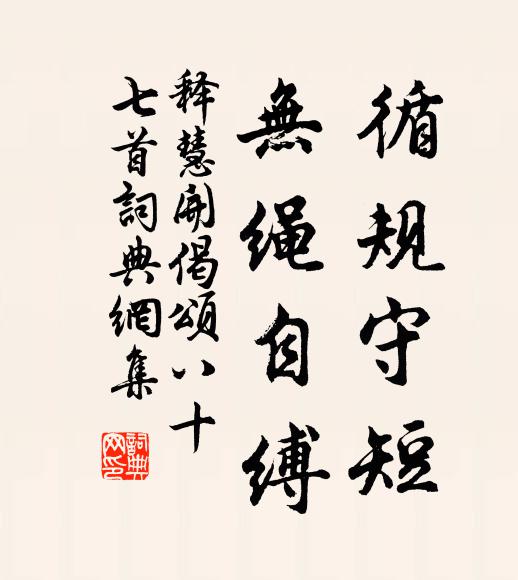 循规守短
無绳自缚
释慧開偈頌八十
七首詞典網集
詞典網印